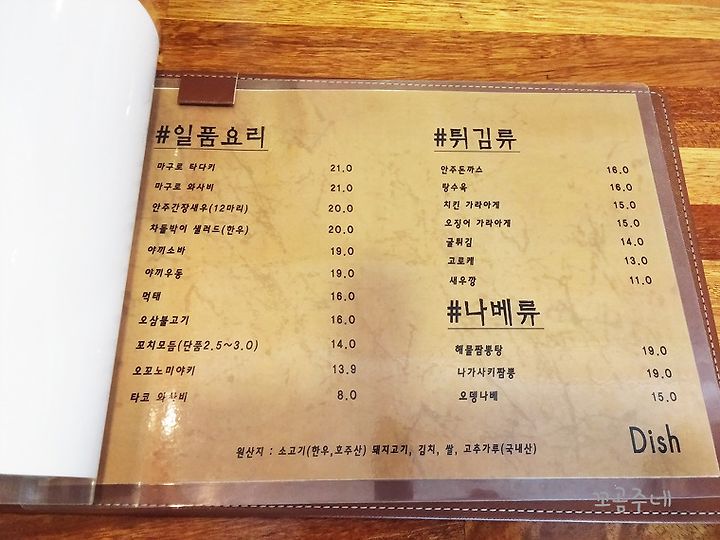 #일품요리
마구로 타다키 21.0
마구로 와사비 21.0
안주간장새우(12마리) 20.0
차돌박이 샐러드(한우) 20.0
야끼소바 19.0
야끼우동 19.0
먹태 16.0
오삼불고기 16.0
꼬치모듬(단품2.5~3.0) 14.0
오꼬노미야키 13.9
타코 와사비 8.0
#튀김류
안주돈까스 16.0
탕수육 16.0
치킨 가라아게 15.0
오징어 가라아게 15.0
굴튀김 14.0
고로케 13.0
새우깡 11.0
#나베류
해물짬뽕탕 19.0
나가사키짬뽕 19.0
오뎅나베 15.0
원산지 : 소고기(한우,호주산) 돼지고기, 김치, 쌀, 고추가루(국내산)
Dish
꼬곰주네